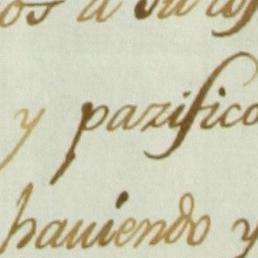 os a su
y pazifico
haviendo y